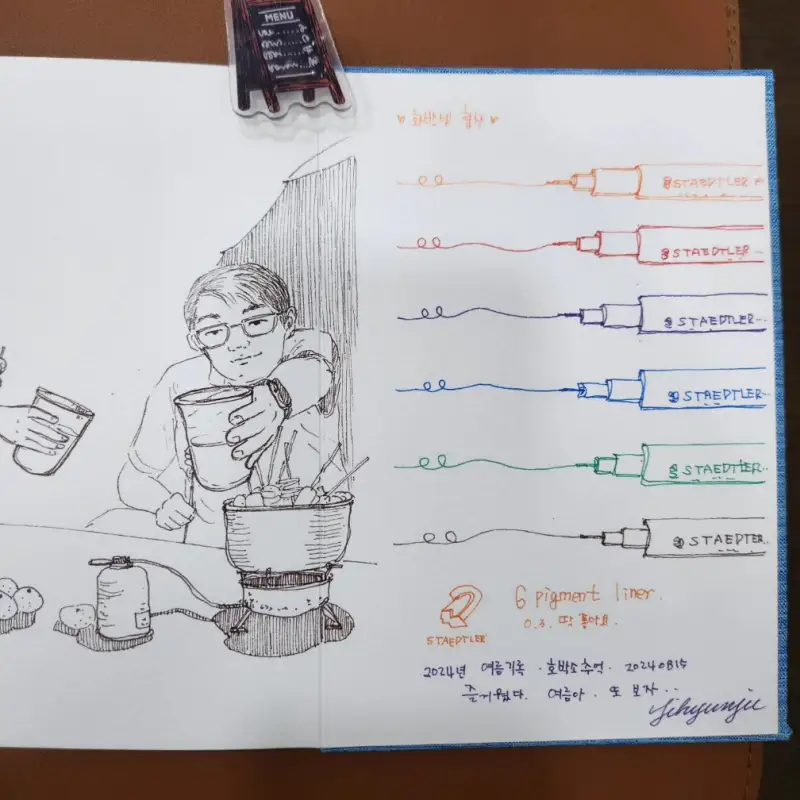 MENU
STAEDTLER
STAEDTLER...
STAEDTLER...
STAEDTLER...
STAEDTLER...
STAEDTER..
6 pigment liner.
0.3. 딱 좋아요.
STAEDTLER
2024년 여름기록 · 호박소추억. 20240815
즐거웠다. 여름아. 또 보자..
jihyunjii